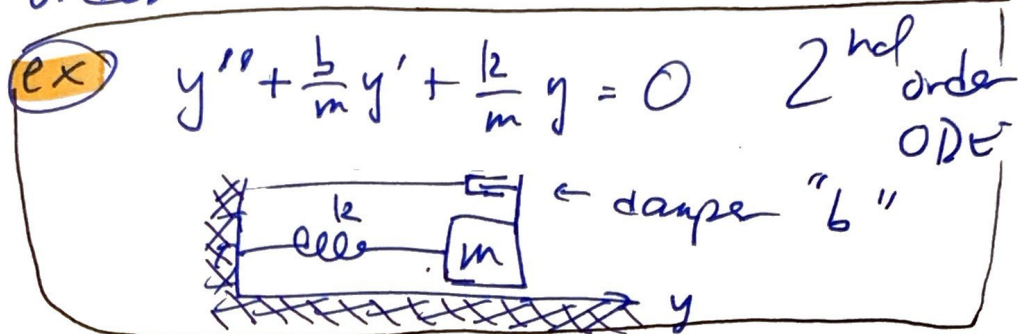 ex y'' + b/m y' + k/m y = 0 2nd order
ODE
k
m
← damper "b"
y